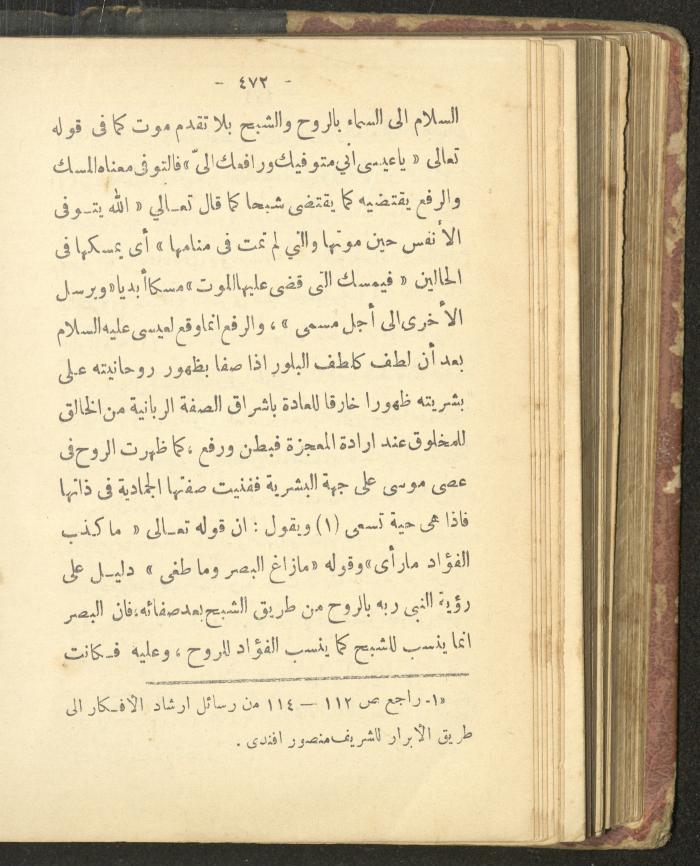 - ٤٧٢ -
السلام الى السماء بالروح والشبح بلا تقدم موت كما فى قوله
تعالى « ياعيسى اني متوفيك ورافعك الىّ » فالتوفى معناه المسك
والرفع يقتضيه كما يقتضى شبحا كما قال تعالي « الله يتوفى
الأنفس حين موتها والتي لم تمت فى منامها » أى يمسكها فى
الحالين « فيمسك التى قضى عليها الموت » مسكا أبديا « ويرسل
الأخرى الى أجل مسمى » ، والرفع انما وقع لعيسى عليه السلام
بعد أن لطف كلطف البلور اذا صفا بظهور روحانيته على
بشريته ظهورا خارقا للعادة باشراق الصفة الربانية من الخالق
للمخلوق عند ارادة المعجزة فبطن ورفع ، كما ظهرت الروح فى
عصى موسى على جهة البشرية ففنيت صفتها الجمادية فى ذاتها
فاذا هى حية تسعى (١) ويقول : ان قوله تعالى « ما كذب
الفؤاد مارأى » وقوله « مازاغ البصر وما طغى » دليل على
رؤية النبى ربه بالروح من طريق الشبح بعد صفائه ، فان البصر
انما ينسب للشبح كما ينسب الفؤاد للروح ، وعليه فكانت
«١- راجع ص ١١٢ — ١١٤ من رسائل ارشاد الافكار الى
طريق الابرار للشريف منصور افندى .